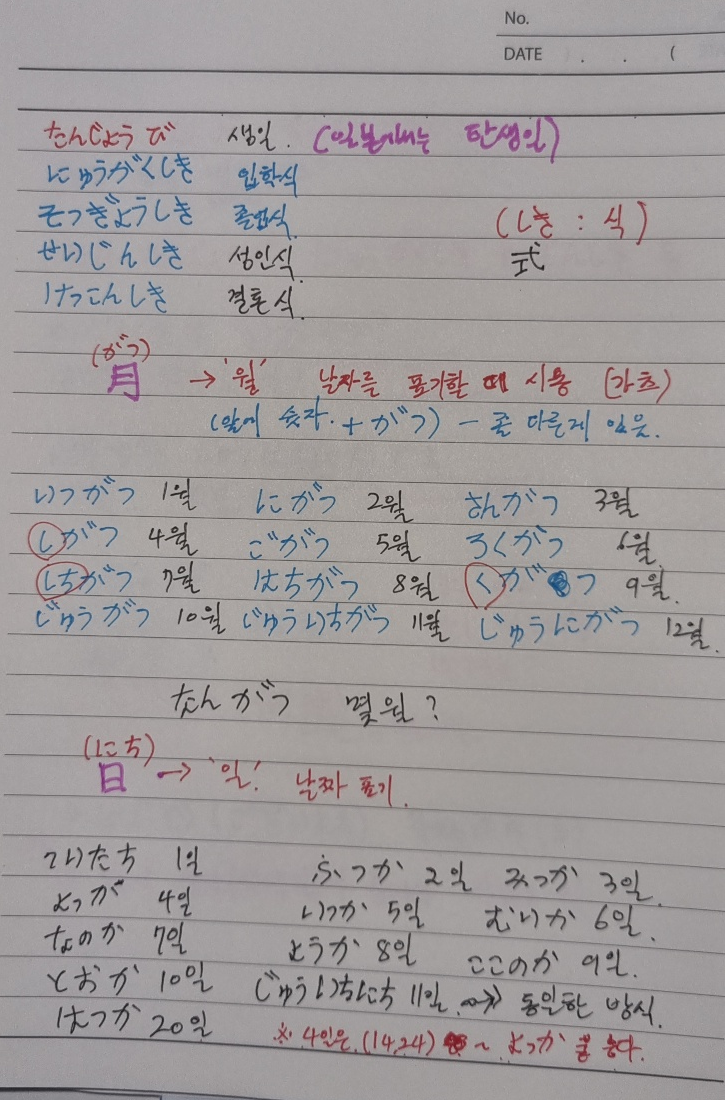 No.
DATE . . (
たんじょうび 생일. (일본에서는 탄생일)
にゅうがくしき 입학식
そつぎょうしき 졸업식
(しき : 식)
せいじんしき 성인식
式
けっこんしき 결혼식
(がつ)
月 → '월' 날자를 표기할 때 사용 (가츠)
(앞에 숫자. + がつ) - 좀 다른게 있음.
いつがつ 1월 にがつ 2월 さんがつ 3월
しがつ 4월 ごがつ 5월 ろくがつ 6월
しちがつ 7월 はちがつ 8월 くがつ 9월.
じゅうがつ 10월 じゅういちがつ 11월 じゅうにがつ 12월.
なんがつ 몇월?
(にち)
日 → '일' 날짜 표기.
ついたち 1일 ふつか 2일 みっか 3일.
よっが 4일 いつか 5일 むいか 6일.
なのか 7일 ようか 8일 ここのか 9일.
とおか 10일 じゅういちにち 11일 → 동일한 방식.
はつか 20일
※ 4일은 (14,24) ~ よっか 를 쓴다.